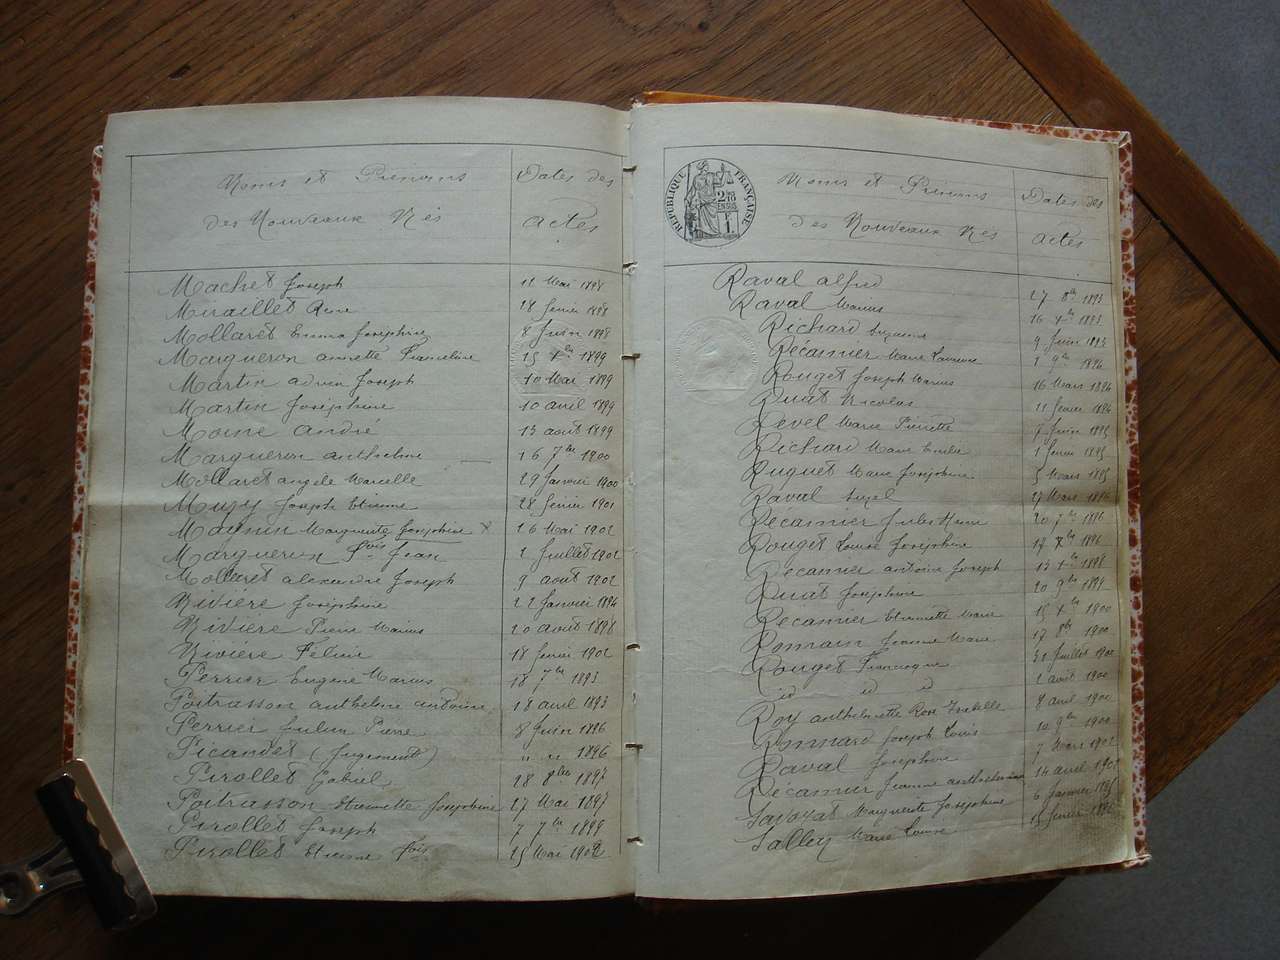 Noms et Prénoms
des Nouveaux Nés
Dates des
actes
Machet Joseph 11 Mai 1898
Miraillet René 18 février 1898
Mollaret Emma Joséphine 8 Juin 1898
Margueron annette Franceline 15 1899
Martin adrien Joseph 10 Mai 1899
Martin Joséphine 10 avril 1899
Moine André 13 août 1899
Margueron anthelme 16 7bre 1900
Mollaret angèle Marcelle 29 Janvier 1900
Muzy Joseph Etienne 28 février 1901
Magnin Marguerite Joséphine x 26 Mai 1902
Margueron fois Jean 1 Juillet 1902
Mollaret alexandre Joseph 9 août 1902
Rivière Joséphine 22 Janvier 1894
Rivière Pierre Marius 20 août 1898
Rivière Félicie 18 février 1902
Perrier Eugène Marius 18 7bre 1893
Poitrasson anthelme antoine 18 avril 1893
Perrier Julien Pierre 8 Juin 1896
Picandet (Jugement) " " 1896
Pirollet Gabriel 28 8bre 1897
Poitrasson Etiennette Joséphine 27 Mai 1897
Pirollet Joseph 7 7bre 1899
Pirollet Etienne fois 25 Mai 1902
RÉPUBLIQUE FRANÇAISE
2/10 EN SUS
1 F.
Noms et Prénoms
des Nouveaux Nés
Dates des
actes
Raval alfred 27 8bre 1893
Raval Marius 16 1893
Richard Suzanne 9 Juin 1893
Récamier Marie 1 9bre 1894
Rouget Joseph Marius 16 Mars 1894
Ruat Nicolas 11 février 1894
Revel Marie Pierrette 7 Juin 1895
Richard Marie Emilie 1 février 1895
Ruguet Marie Joséphine 5 Mars 1895
Raval 27 Mars 1896
Récamier Jules 20 7bre 1896
Rouget Louise Joséphine 17 1896
Récamier antoine Joseph 13 1898
Ruat Joséphine 20 9bre 1899
Récamier Etiennette Marie 15 1900
Romain Jeanne Marie 17 8bre 1900
Rouget Françoise 31 Juillet 1900
id id id 1 août 1900
Roy anthelmette Rose Isabelle 8 avril 1900
Ronnard Joseph Louis 10 9bre 1900
Raval Joséphine 7 Mars 1902
Récamier Jeanne anthelmine 14 avril 1902
Savoyat Marguerite Joséphine 6 Janvier 1895
Salley Marie Louise 15 février 1896